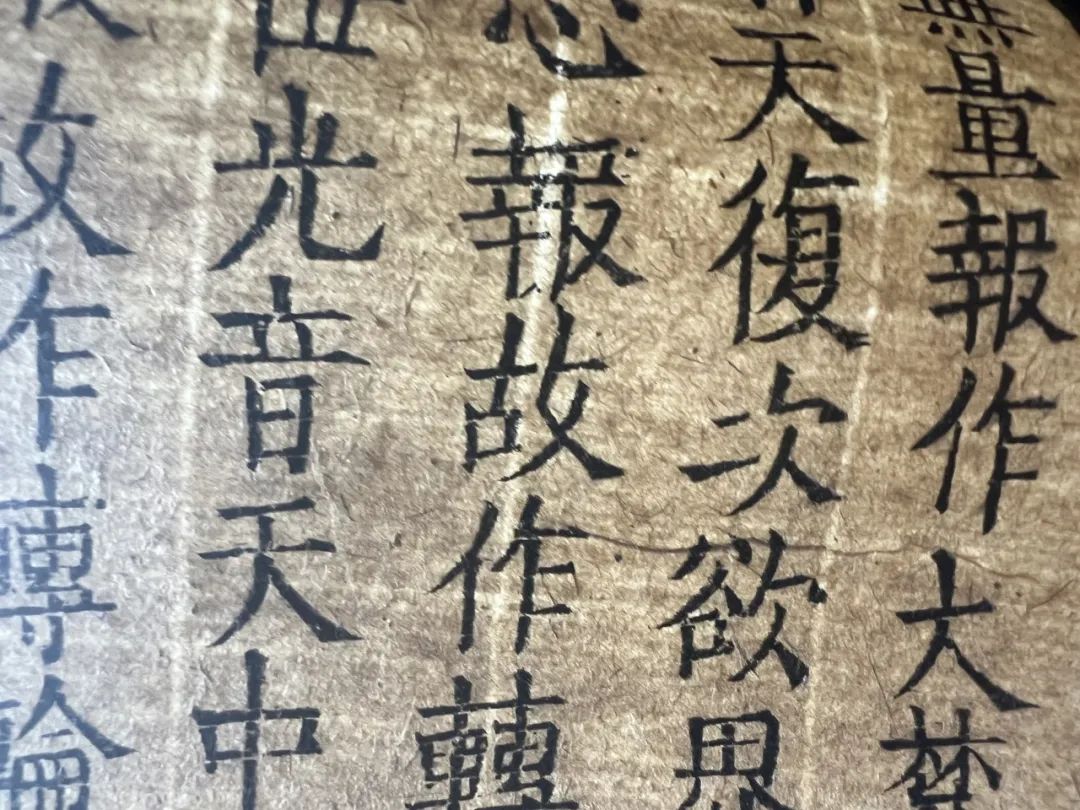 無量報作大梵
天復次欲界
報故作轉
光音天中
故作轉輪